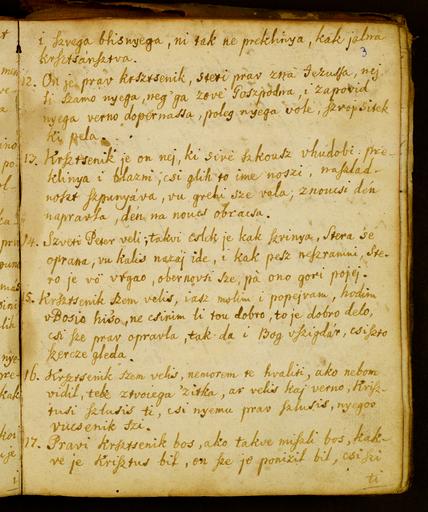 i szvega blisnyega, ni tak ne preklinya, kak jalna
krsztsansztva.
3
12. On je prav krsztsenik, steri prav zna Jezussa, nej
li szamo nyega, neg ga zove Goszpodna, i zapovid
nyega verno dopernassa, poleg nyega vole,
ki pela.
13. Krsztsenik je on nej, ki sive szkousz vhudobi: pre-
klinya i blazni, csi glih to ime noszi, naszlad-
noszt szpunyáva, vu grehi sze vala, znoucsi den
napravla, den na noucs obracsa.
14. Szveti Peter veli, takvi cslek je kak szvinya, stera se
oprana, vu kalis nazáj ide, i kak pesz neszramni, ste-
ro je vö vrgao, obernovsi sze, pà ono gori pojej.
15. Krsztsenik szem velis, i asz molim i popejvam, hodim
vBosio hiso, ne csinim li tou dobro, to je dobro delo,
csi sze prav opravla, tak da i Bog vszigdár, csiszto
szercze gleda.
16. Krsztsenik szem velis, nemorem te hvaliti, ako nebom
vidil, tebe ztvoiega 'zitka, ar velis kaj verno, Krisz-
tusi szlusis ti, csi nyemu prav szlusis, nyegov
vucsenik szi.
17. Pravi krsztsenik bos, ako takve miszli bos, kak-
ve je Krisztus bil, on sze je ponizil bil, csi szi
ti